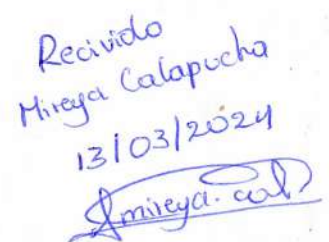 Recivido
Mireya Calapucha
13/03/2024
mireya.cal